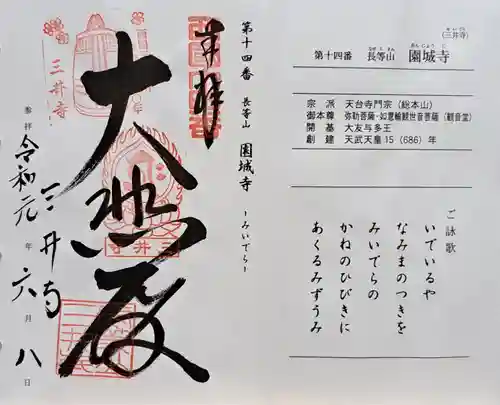 (三井寺)
第十四番 長等山 園城寺
宗 派 天台寺門宗(総本山)
御本尊 弥勒菩薩・如意輪観世音菩薩(観音堂)
開 基 大友与多王
創 建 天武天皇15(686)年
ご詠歌
いでいるや
なみまのつきを
みいでらの
かねのひびきに
あくるみずうみ
第十四番 長等山 園城寺 ーみいでらー
奉拝
大悲殿
三井寺
三井寺
三井寺
参拝 令和元年六月八日